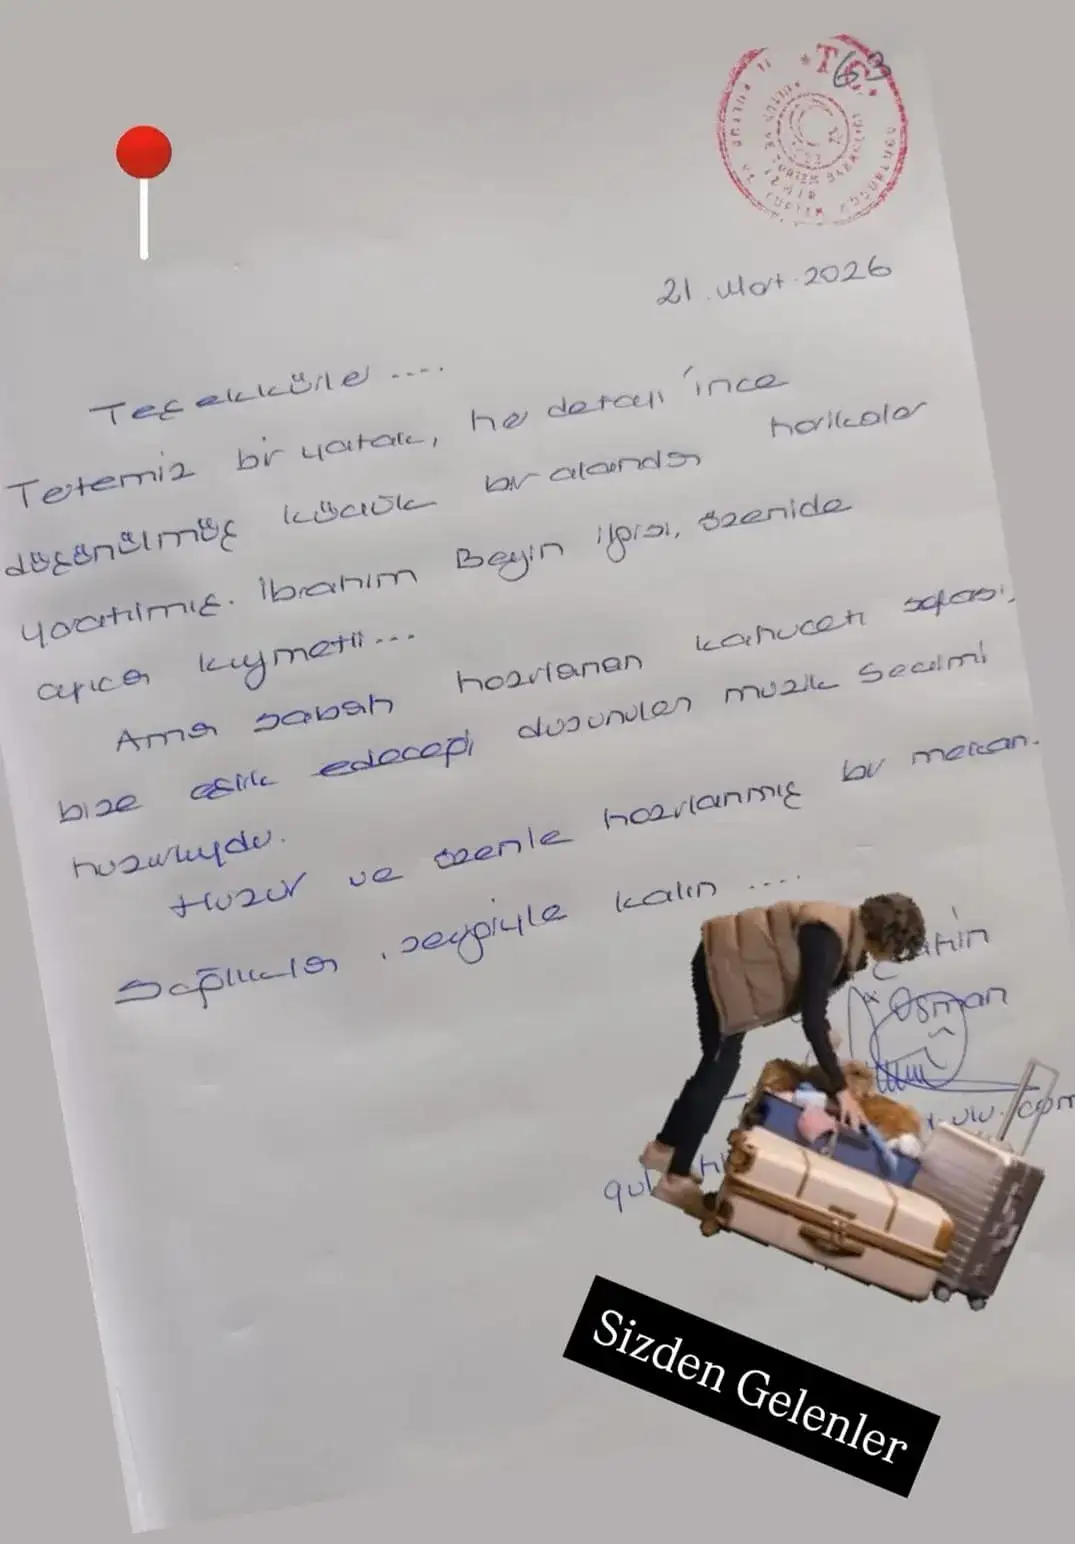 T.C.
63
21 Mart 2026
Teşekkürler ....
Tertemiz bir yatak, her detayı ince
düşünülmüş küçük bir alanda harikalar
yaratılmış. İbrahim Beyin ilgisi, özenide
ayrıca kıymetli...
Ama sabah hazırlanan kahvaltı sofrası,
bize eşlik edeceği düşünülen müzik seçimi
huzurluydu.
Huzur ve özenle hazırlanmış bir mekan.
Sağlıkla, sevgiyle kalın ....
Osman
Sizden Gelenler